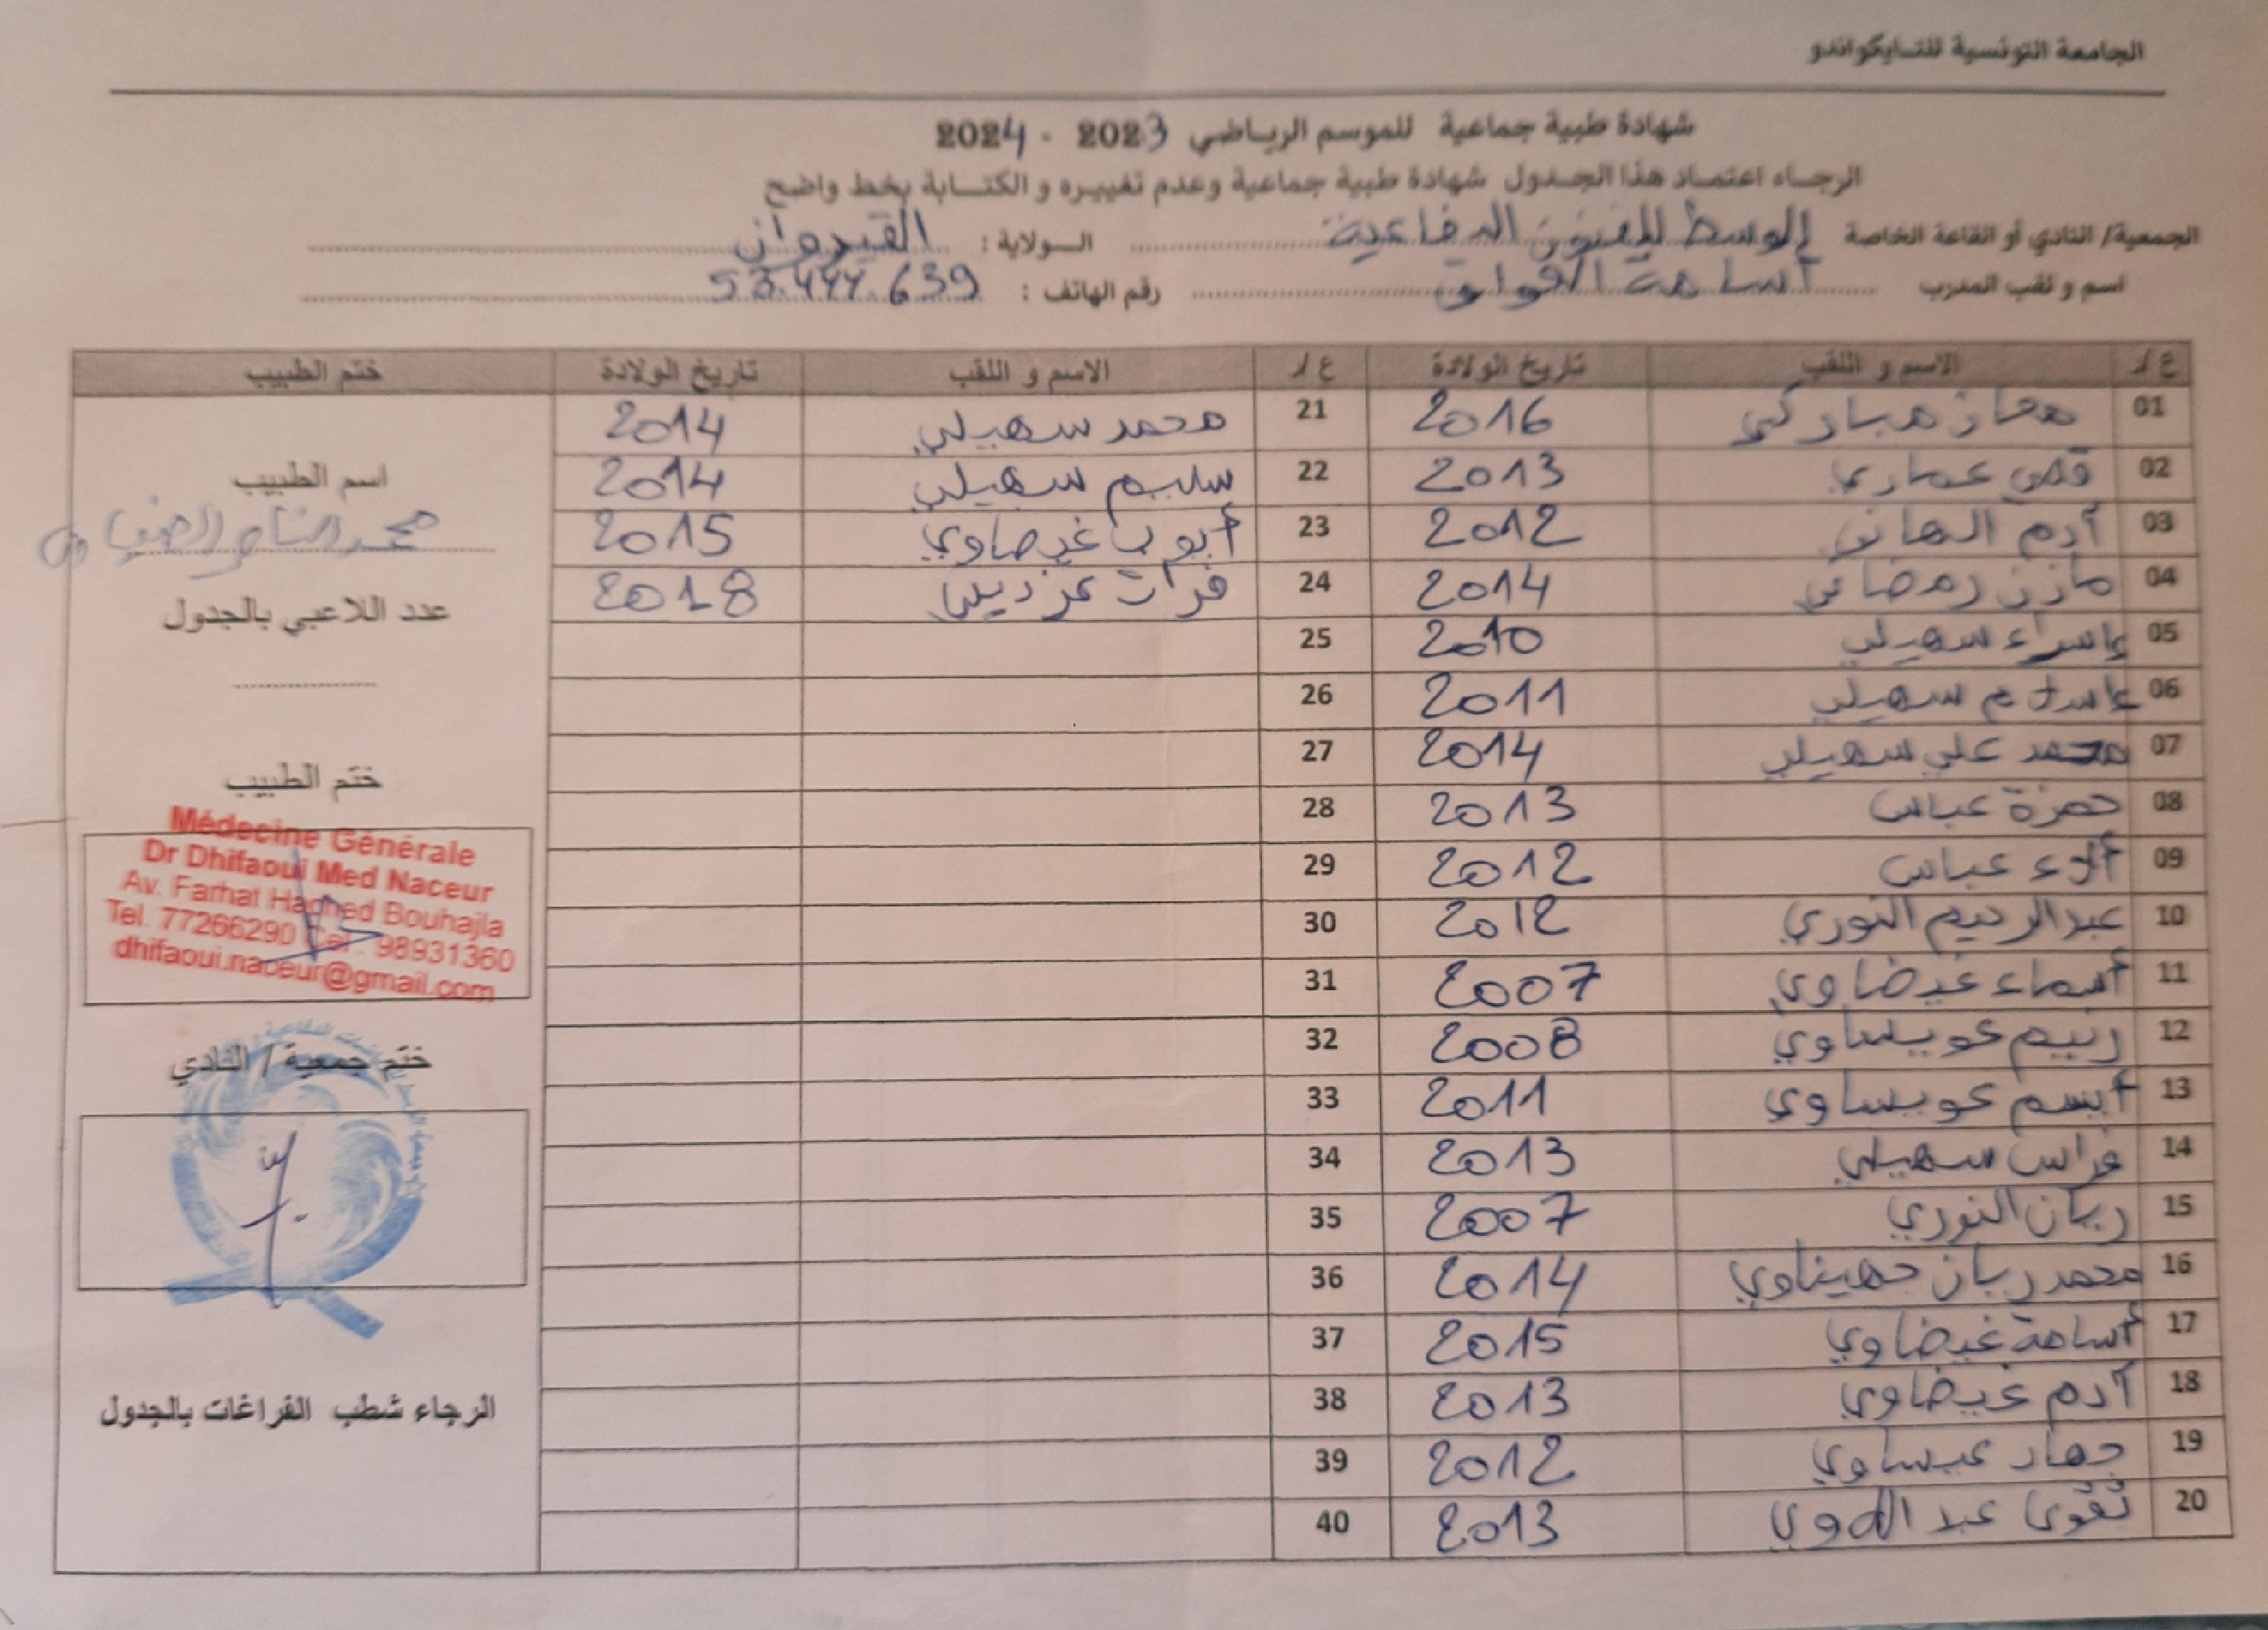 الجامعة التونسية للتايكواندو
شهادة طبية جماعية للموسم الرياضي 2023 - 2024
الرجاء اعتماد هذا الجدول شهادة طبية جماعية وعدم تغييره و الكتابة بخط واضح
الجمعية/ النادي أو القاعة الخاصة الوسط للفنون الدفاعية الولاية : القيروان
اسم و لقب المدرب أسامة رقم الهاتف : 53.444.639
ع/ الاسم و اللقب تاريخ الولادة ع/ الاسم و اللقب تاريخ الولادة ختم الطبيب
01 معاذ مباركي 2016 21 محمد سهيلي 2014
02 قصي عماري 2013 22 سليم سهيلي 2014
03 آدم الهاني 2012 23 أيوب غيضاوي 2015
04 مازن رمضاني 2014 24 فرات 2018
05 إسراء سهيلي 2010 25
06 إسلام سهيلي 2011 26
07 محمد علي سهيلي 2014 27
08 حمزة عباس 2013 28
09 ألاء عباس 2012 29
10 عبد الرحيم النوري 2012 30
11 أسماء غيضاوي 2007 31
12 رنيم عويساوي 2008 32
13 عويساوي 2011 33
14 فراس سهيلي 2013 34
15 ريان النوري 2007 35
16 محمد ريان جهيناوي 2014 36
17 أسامة غيضاوي 2015 37
18 آدم غيضاوي 2013 38
19 جهاد عيساوي 2012 39
20 تقوى عبد اللاوي 2013 40
اسم الطبيب
محمد الناصر الضيفاوي
عدد اللاعبي بالجدول
ختم الطبيب
Médecine Générale
Dr Dhifaoui Med Naceur
Av. Farhat Hached Bouhajla
Tel. 77266290 Cel : 98931360
dhifaoui.naceur@gmail.com
ختم جمعية / النادي
الرجاء شطب الفراغات بالجدول